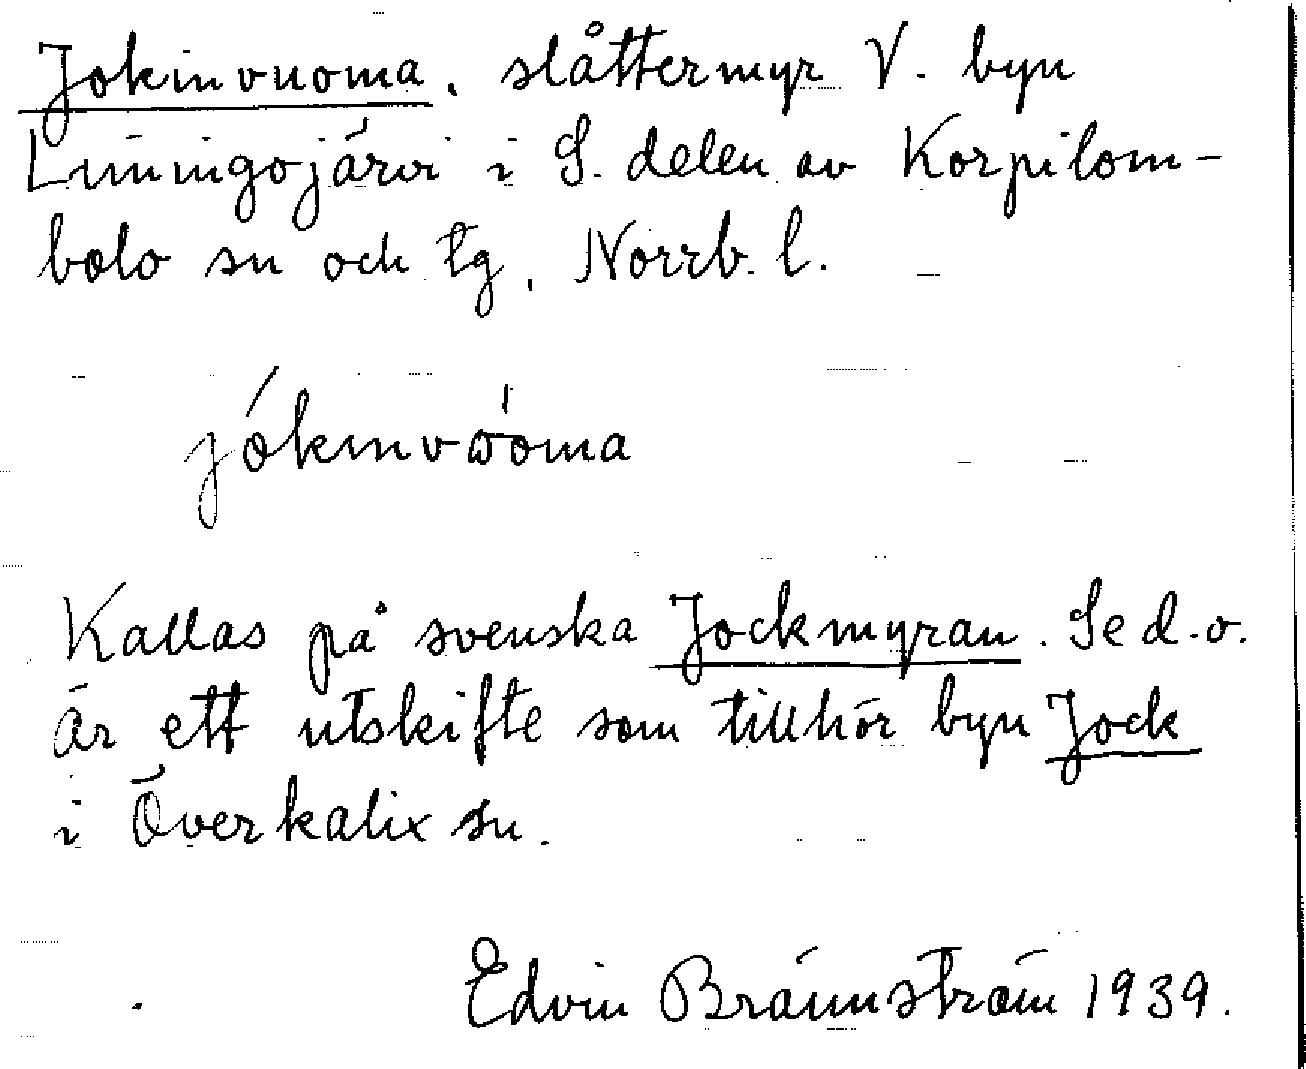 Jokinvuoma, slåttermyr V. byn
Liiningojärvi i S. delen av Korpilom-
bolo sn och tg, Norrb. l.
jókinvω̍oma
Kallas på svenska Jockmyran. Se d.o.
Är ett utskifte som tillhör byn Jock
i Överkalix sn.
Edvin Brännström 1939.